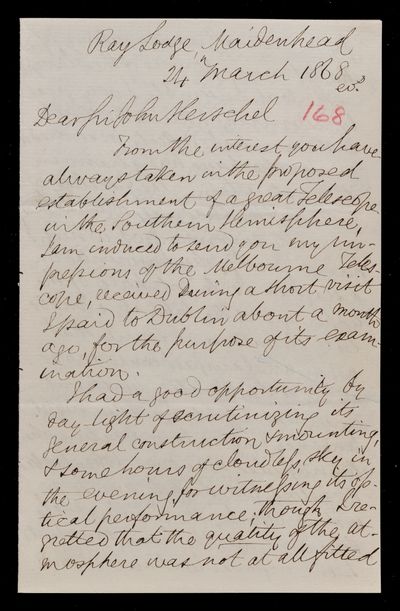 Ray Lodge, Maidenhead
24th March 1868
Dear Sir John Herschel 168
From the interest you have
always taken in the proposed
establishment of a great Telescope
in the Southern Hemisphere,
I am induced to send you my im-
pressions of the Melbourne Teles-
cope, received During a short visit
I paid to Dublin about a month
ago, for the purpose of its exam-
ination.
I had a good opportunity by
day light of scrutinizing its
general construction & mounting,
& some hours of cloudless sky in
the evening for witnessing its op-
tical performance; though I re-
gretted that the quality of the at-
mosphere was not at all fitted